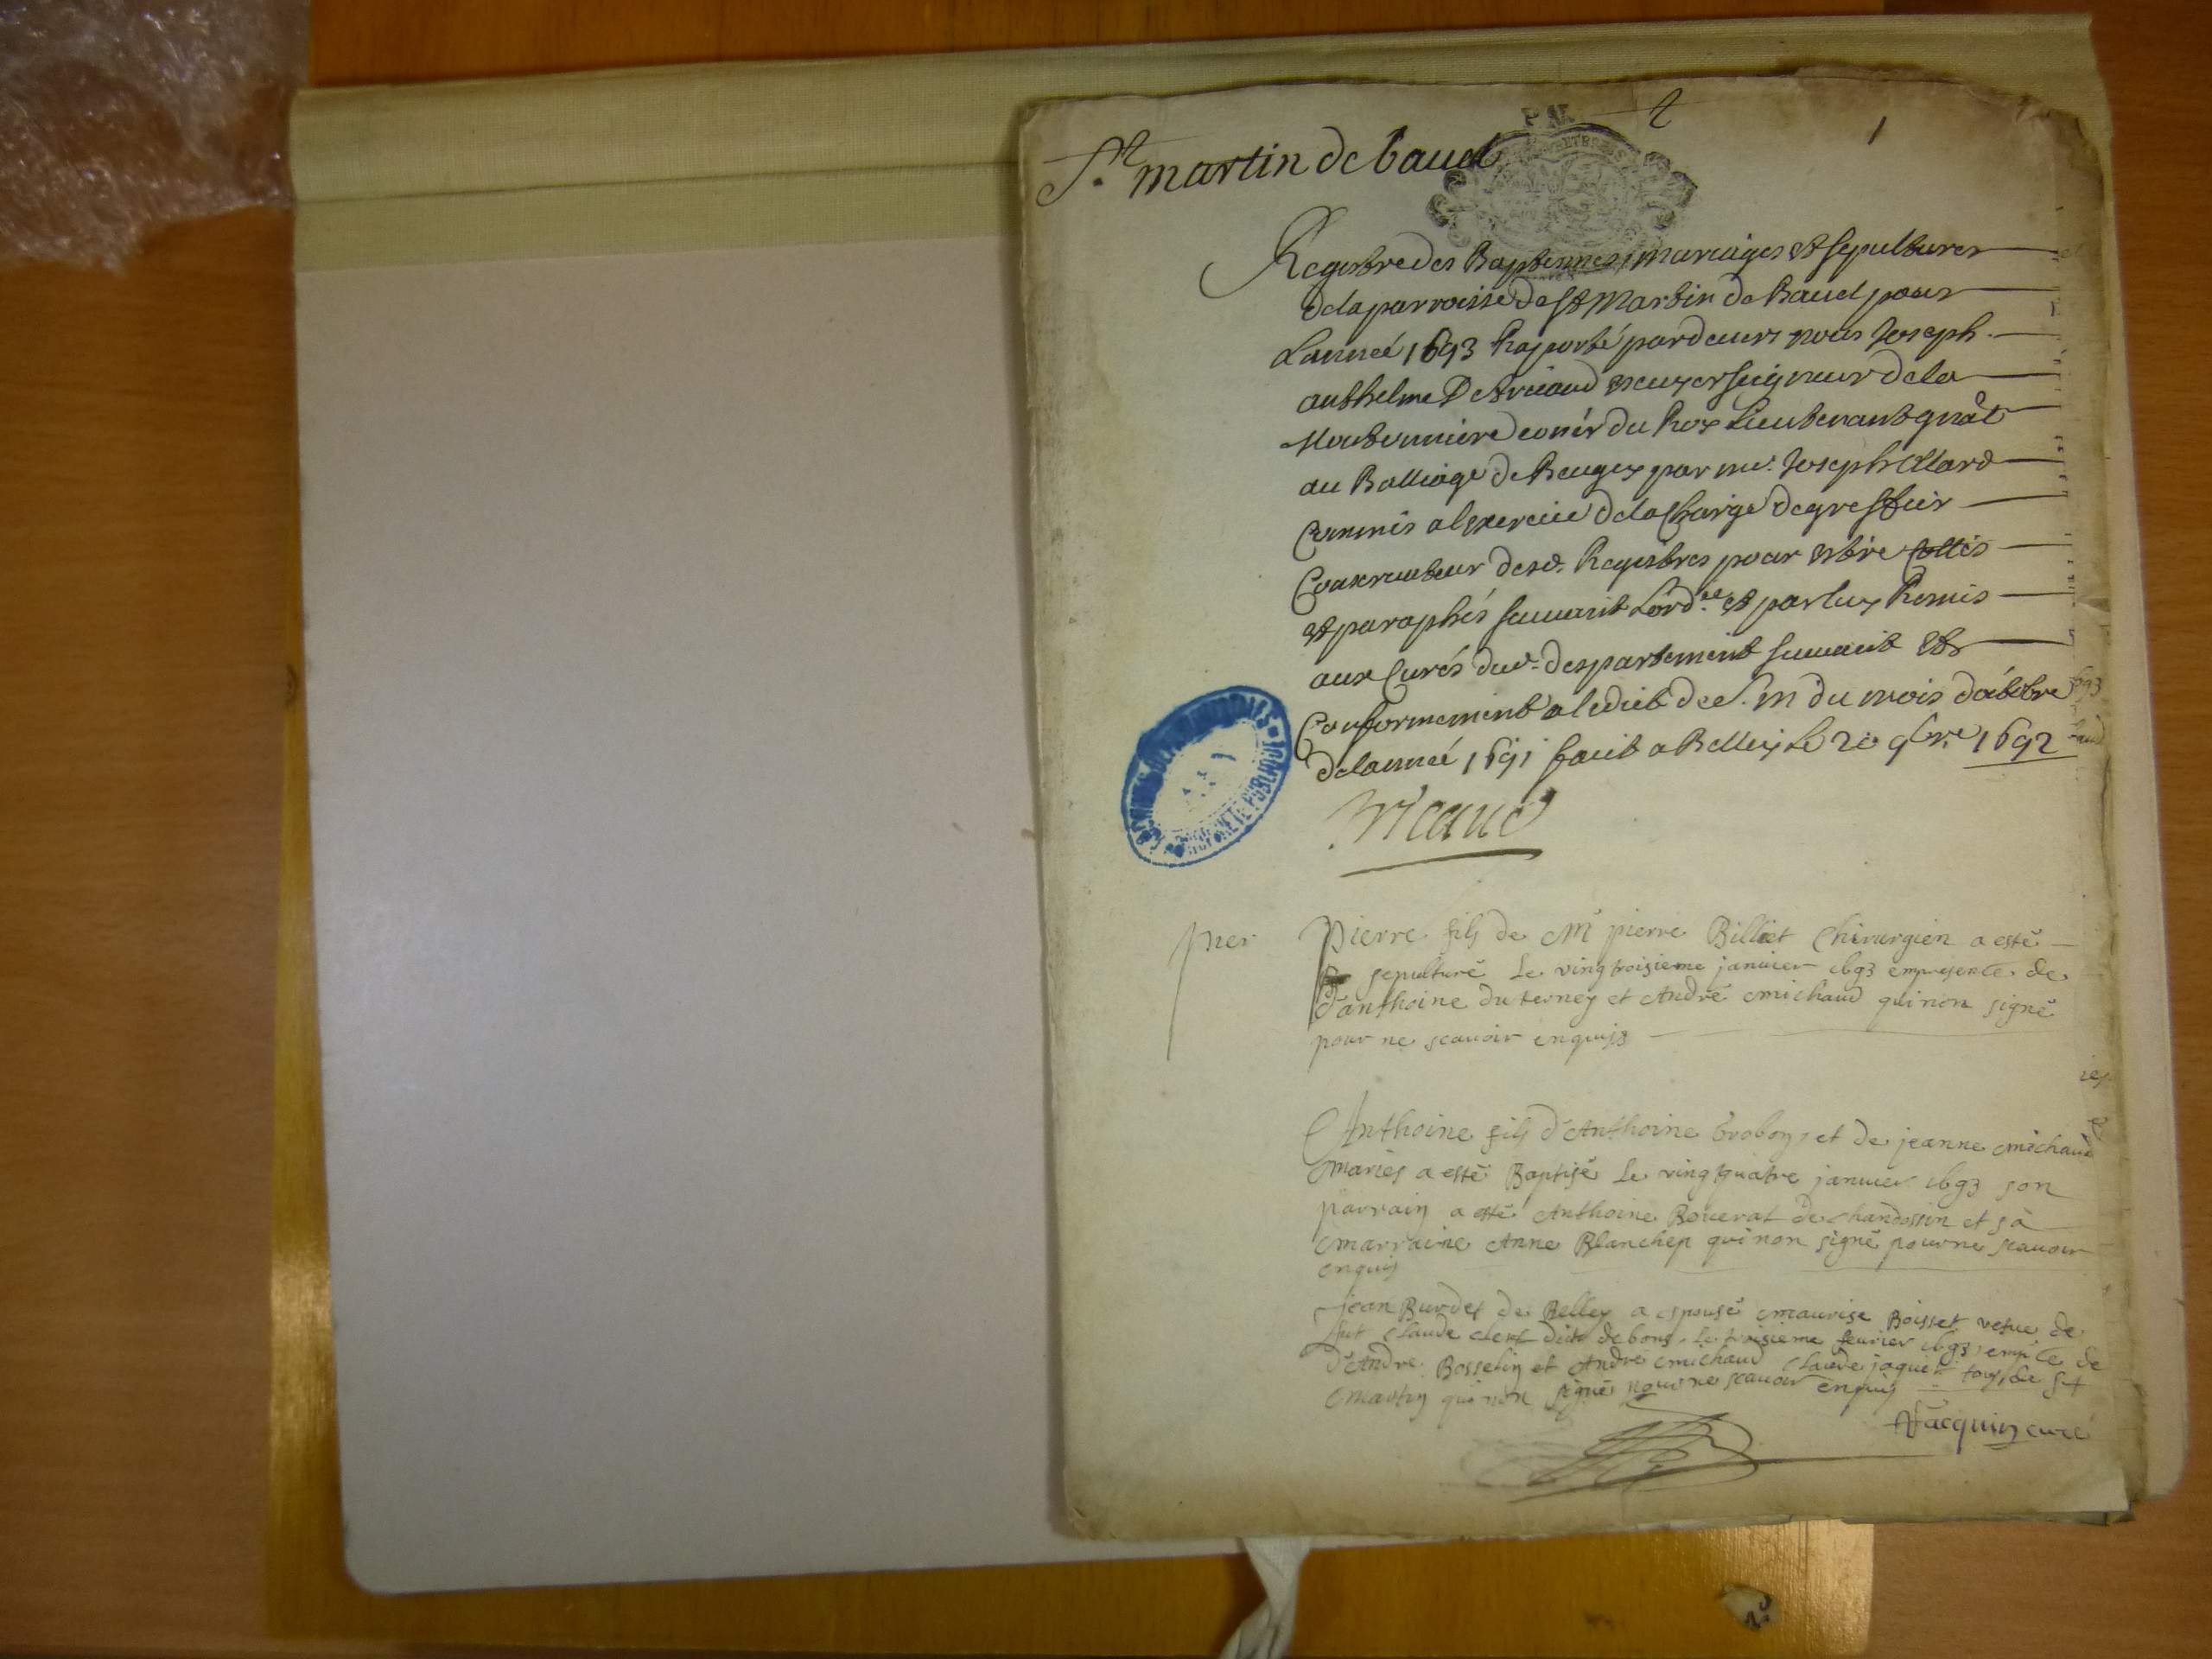 2
1
St martin de baud
Registre des Baptesmes, mariages et sepultures
de la parroisse de St Martin de Baud pour
Lanneé 1693 Raporté pardeuers nous Joseph
anthelme D'Aricaud escuyer seigneur de la
du Roy Lieutenant gnâl
au Balliage de Beugey par me. Joseph
Commis a lexercice de la Charge de greffier
Conseruateur desd. Registres pour estre Cottés
et paraphés suiuant Lord.ce et par luy Remis
aux Curés dud. despartement suiuant et
Conformement a ledict de S. M du mois doctobre
de lanneé 1691 faict a Belley Le 20 9bre 1692
Aricaud
pier
Pierre fils de Mr pierre Billiet Chirurgien a esté
sepulturé Le vingtroisieme januier 1693 empresence de
d'anthoine du terney et André michaud qui non signé
pour ne scauoir enquis
Anthoine fils d'Anthoine broboy, et de jeanne michaud
mariés a esté Baptisé Le vingtquatre januier 1693 son
parrain a esté Anthoine Bouerat de chandossin et sa
marraine Anne Blanchep qui non signé pour ne scauoir
enquis
Jean Burdet de Belley a espousé maurise Boisset vefue de
fut Claude clert dict de bons, Le troisieme feurier 1693, empce de
d'André Bosselin et André michaud Claude jaquet tous de St
martin qui non signés pour ne scauoir enquis
Jacquin curé